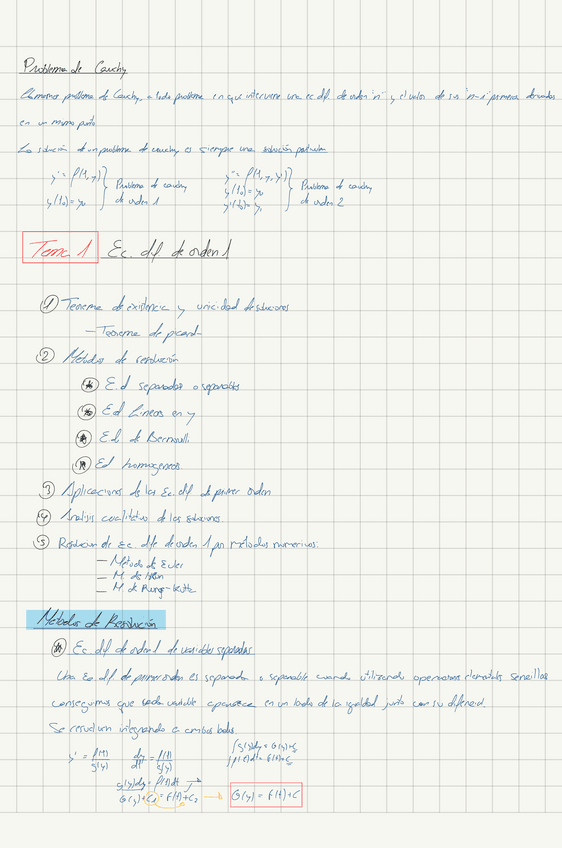 Problema de Cauchy
Llamamos problema de Cauchy a todo problema en que interviene una ec dif. de orden "n" y el valor de sus "n-1" primeras derivadas
en un mismo punto
La solución de un problema de cauchy es siempre una solución particular
y' = f(t,y) y'' = f(t,y,y')
y(t₀) = y₀ } Problema de cauchy de orden 1 y(t₀) = y₀ } Problema de cauchy de orden 2
y'(t₀) = y₁
Tema 1 Ec. dif de orden 1
① Teorema de existencia y unicidad de soluciones
— Teorema de picard
② Métodos de resolución
E.d separadas o separables
Ed Lineas en y
Ed de Bernoulli
Ed homogeneas
③ Aplicaciones de las Ec. dif de primer orden
④ Analisis cualitativo de las soluciones
⑤ Resolucion de Ec. dife de orden 1 por métodos numericos:
— Método de Euler
— M de
— M de Runge-Kutta
Métodos de Resolución
Ec dif de orden 1 de variables separadas
Una Ec dif de primer orden es separada o separable cuando utilizando operaciones elementales sencillas
conseguimos que cada variable aparezca en un lado de la igualdad junto con su diferencial.
Se resuelven integrando a ambos lados.
y' = f(t)/g(y) dy/dt = f(t)/g(y) ∫g(y)dy = G(y)+C₁
∫f(t)dt = F(t)+C₂
g(y)dy = f(t)dt
G(y)+C₁ = F(t)+C₂ → G(y) = F(t)+C